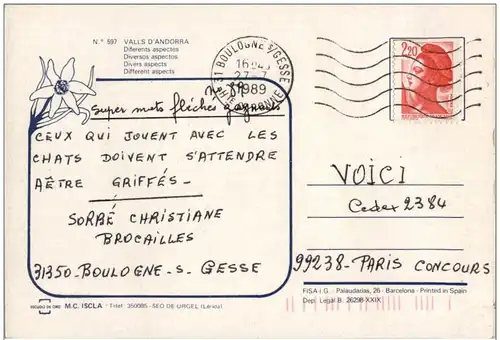 N.º 597 VALLS D'ANDORRA
Diferents aspectes
Diversos aspectos
Divers aspects
Different aspects
31 BOULOGNE S/GESSE
16H45
27-7
1989
HTE GARONNE
2,20
Super mots fléchés
CEUX QUI JOUENT AVEC LES
CHATS DOIVENT S'ATTENDRE
A ÊTRE GRIFFÉS -
SORBÉ CHRISTIANE
BROCAILLES
31350 - BOULOGNE - S - GESSE
VOICI
Cedex 2384
99238 - PARIS CONCOURS
M.C. ISCLA - Tdef. 350085 - SEO DE URGEL (Lérida)
FISA I.G. - Palaudarias, 26 - Barcelona - Printed in Spain
Dep. Legal B. 26298-XXIX